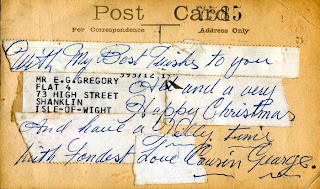 Post Card
For Correspondence Address Only
With My Best Wishes to you
MR E.G.GREGORY
FLAT 4
73 HIGH STREET
SHANKLIN
ISLE-OF-WIGHT
All and a very
Happy Christmas
And have a Jolly time
With Fondest Love Cousin George.